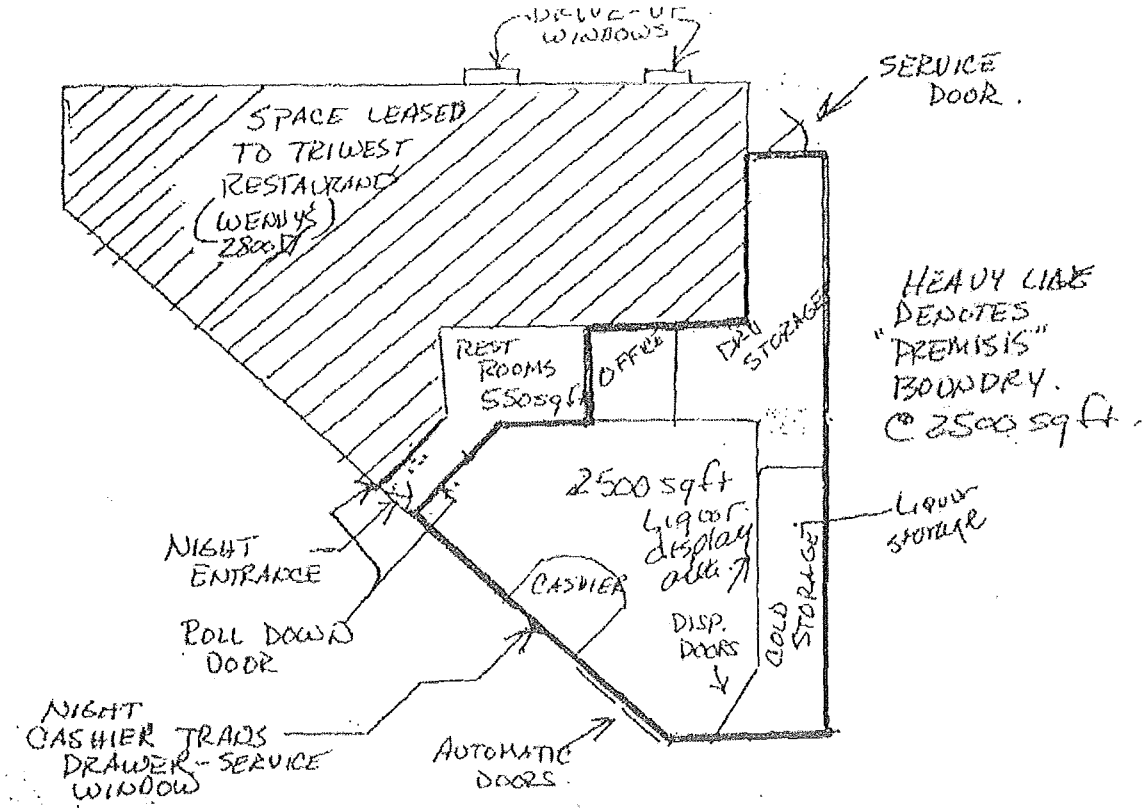 DRIVE-UP
WINDOWS
SERVICE
DOOR.
SPACE LEASED
TO TRIWEST
RESTAURANT
(WENDYS
2800 )
HEAVY LINE
DENOTES
"PREMISIS"
BOUNDRY.
@ 2500 sq ft.
REST
ROOMS
550 sq ft
OFFICE
DRY
STORAGE
2500 sq ft
Liquor
display
Liquor
storage
COLD
STORAGE
CASHIER
DISP.
DOORS
NIGHT
ENTRANCE
ROLL DOWN
DOOR
NIGHT
CASHIER TRANS
DRAWER-SERVICE
WINDOW
AUTOMATIC
DOORS.